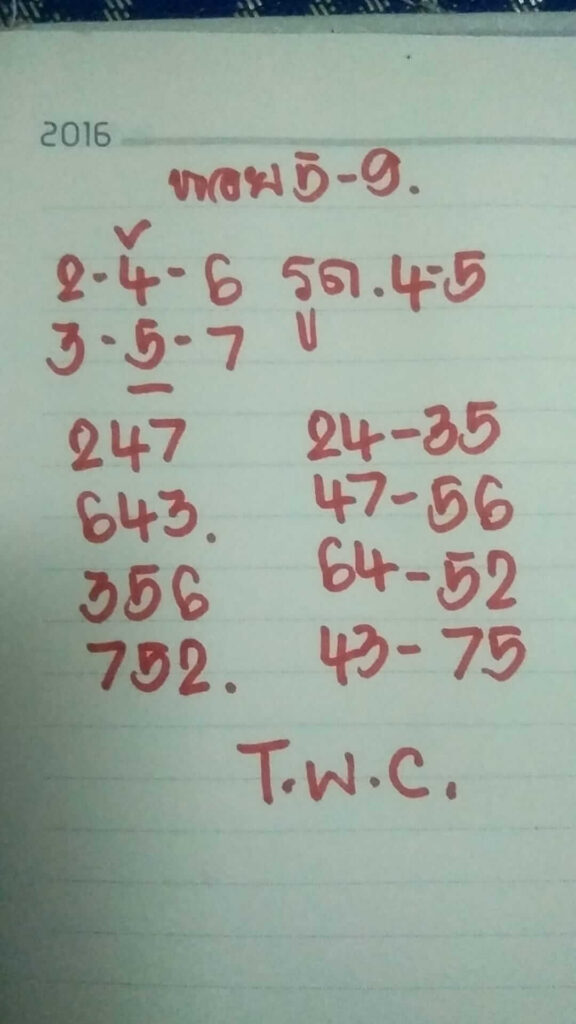 2016
5-9.
2-4-6 รูด.4-5
3-5-7
247 24-35
643. 47-56
356 64-52
752. 43-75
T.W.C.